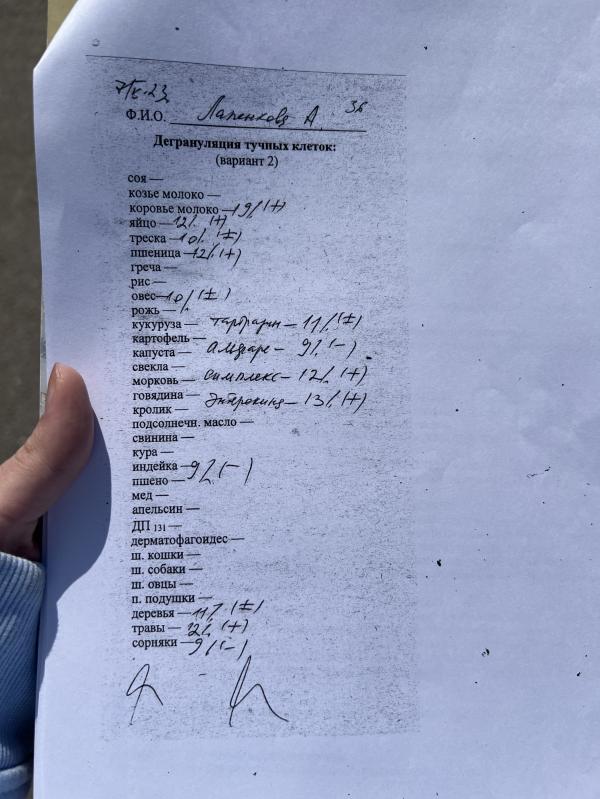 Ф.И.О. А. 36
Дегрануляция тучных клеток:
(вариант 2)
соя —
козье молоко —
коровье молоко — 19% (+)
яйцо — 12% (+)
треска — 10% (±)
пшеница — 12% (+)
греча —
рис —
овес — 10% (±)
рожь —
кукуруза — 11% (±)
картофель —
капуста — 9% (-)
свекла —
морковь — симплекс — 12% (+)
говядина —
кролик — 13% (+)
подсолнечн. масло —
свинина —
кура —
индейка — 9% (-)
пшено —
мед —
апельсин —
ДП 131 —
дерматофагоидес —
ш. кошки —
ш. собаки —
ш. овцы —
п. подушки —
деревья — 11% (±)
травы — 12% (+)
сорняки — 9% (-)